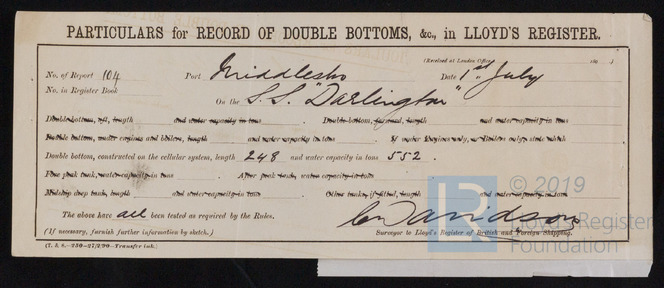 PARTICULARS for RECORD OF DOUBLE BOTTOMS, &c., in LLOYD'S REGISTER.
(Received at London Office 189 )
No. of Report 104 Port Middlesbro Date 1st July
No. in Register Book On the S.S. "Darlington"
Double bottom, aft, length and water capacity in tons . Double bottom, forward, length and water capacity in tons
Double bottom, under engines and boilers, length and water capacity in tons . If under Engines only, or Boilers only, state which
Double bottom, constructed on the cellular system, length 248 and water capacity in tons 552 .
Fore peak tank, water capacity in tons . After peak tank, water capacity in tons
Midship deep tank, length and water capacity in tons Other tanks, if fitted, length and water capacity in tons
The above have all been tested as required by the Rules.
Davidson
(If necessary, furnish further information by sketch.) Surveyor to Lloyd's Register of British and Foreign Shipping.
Transfer ink.)
LR © 2019
Lloyd's Register
Foundation